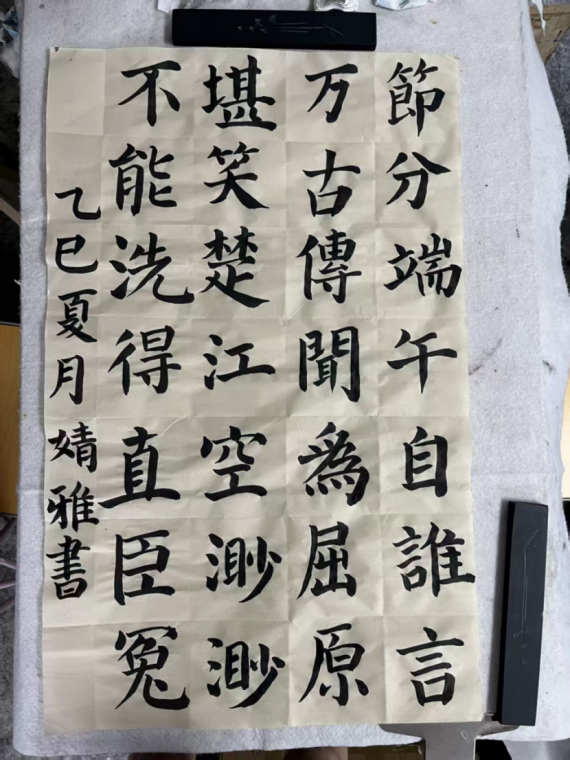 節分端午自誰言
万古傳聞為屈原
堪笑楚江空渺渺
不能洗得直臣冤
乙巳夏月 婧雅書